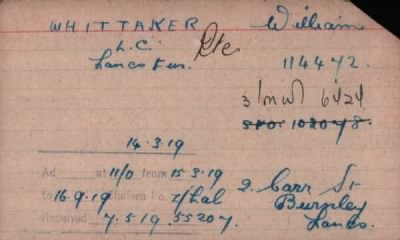 WHITTAKER William
L.C. Pte
Lancs Fus. 114472.
3/MW/ 6424
S.F.O. 102048.
14.3.19
Ad at 11/0 from 15.3.19
to 16.9.19 Chelsea 1.c. 2. Carr St
Burnley
Received 7.5.19. 55207 Lancs.